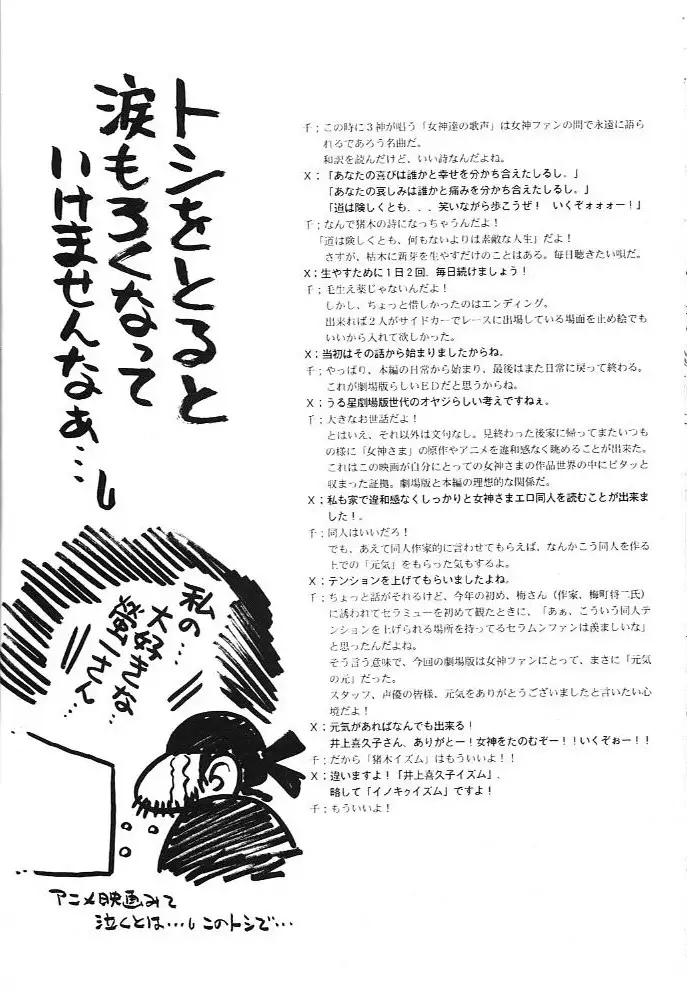 トシをとると
涙もろくなって
いけませんなぁ…
私の…
大好きな
螢一さん…
アニメ映画みて
泣くとは…このトシで…
千；この時に３神が唱う「女神達の歌声」は女神ファンの間で永遠に語ら
れるであろう名曲だ。
和訳を読んだけど、いい詩なんだよね。
Ｘ；「あなたの喜びは誰かと幸せを分かち合えたしるし。」
「あなたの哀しみは誰かと痛みを分かち合えたしるし。」
「道は険しくとも．．．笑いながら歩こうぜ！　いくぞォォォー！」
千；なんで猪木の詩になっちゃうんだよ！
「道は険しくとも、何もないよりは素敵な人生」だよ！
さすが、枯木に新芽を生やすだけのことはある。毎日聴きたい唄だ。
Ｘ；生やすために１日２回．毎日続けましょう！
千；毛生え薬じゃないんだよ！
しかし、ちょっと惜しかったのはエンディング。
出来れば２人がサイドカーでレースに出場している場面を止め絵でも
いいから入れて欲しかった。
Ｘ；当初はその話から始まりましたからね。
千；やっぱり、本編の日常から始まり、最後はまた日常に戻って終わる。
これが劇場版らしいＥＤだと思うからね。
Ｘ；うる星劇場版世代のオヤジらしい考えですねぇ。
千；大きなお世話だよ！
とはいえ、それ以外は文句なし。見終わった後家に帰ってまたいつも
の様に「女神さま」の原作やアニメを違和感なく眺めることが出来た。
これはこの映画が自分にとっての女神さまの作品世界の中にピタッと
収まった証拠。劇場版と本編の理想的な関係だ。
Ｘ；私も家で違和感なくしっかりと女神さまエロ同人を読むことが出来ま
した！。
千；同人はいいだろ！
でも、あえて同人作家的に言わせてもらえば、なんかこう同人を作る
上での「元気」をもらった気もするよ。
Ｘ；テンションを上げてもらいましたよね。
千；ちょっと話がそれるけど、今年の初め、梅さん（作家、梅町将二氏）
に誘われてセラミューを初めて観たときに、「あぁ、こういう同人テ
ンションを上げられる場所を持ってるセラムンファンは羨ましいな」
と思ったんだよね。
そう言う意味で、今回の劇場版は女神ファンにとって、まさに「元気
の元」だった。
スタッフ、声優の皆様、元気をありがとうございましたと言いたい心
境だよ！
Ｘ；元気があればなんでも出来る！
井上喜久子さん、ありがとー！女神をたのむぞー！！いくぞぉー！！
千；だから「猪木イズム」はもういいよ！！
Ｘ；違いますよ！「井上喜久子イズム」．
略して「イノキゥイズム」ですよ！
千；もういいよ！